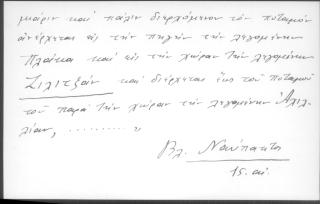 μαύριν καὶ πάλιν διερχόμενον τὸν ποταμὸν
ἀνέρχεται εἰς τὴν πηγὴν τὴν λεγομένην
Πλάκα καὶ εἰς τὴν χώραν τὴν λεγομένην
Ζιλιτζὰν καὶ διέρχεται ἕως τοῦ ποταμοῦ
τοῦ παρὰ τὴν χώραν τὴν λεγομένην
λιαν, ..........
Βλ. Ναύπακτος
15. αἰ.